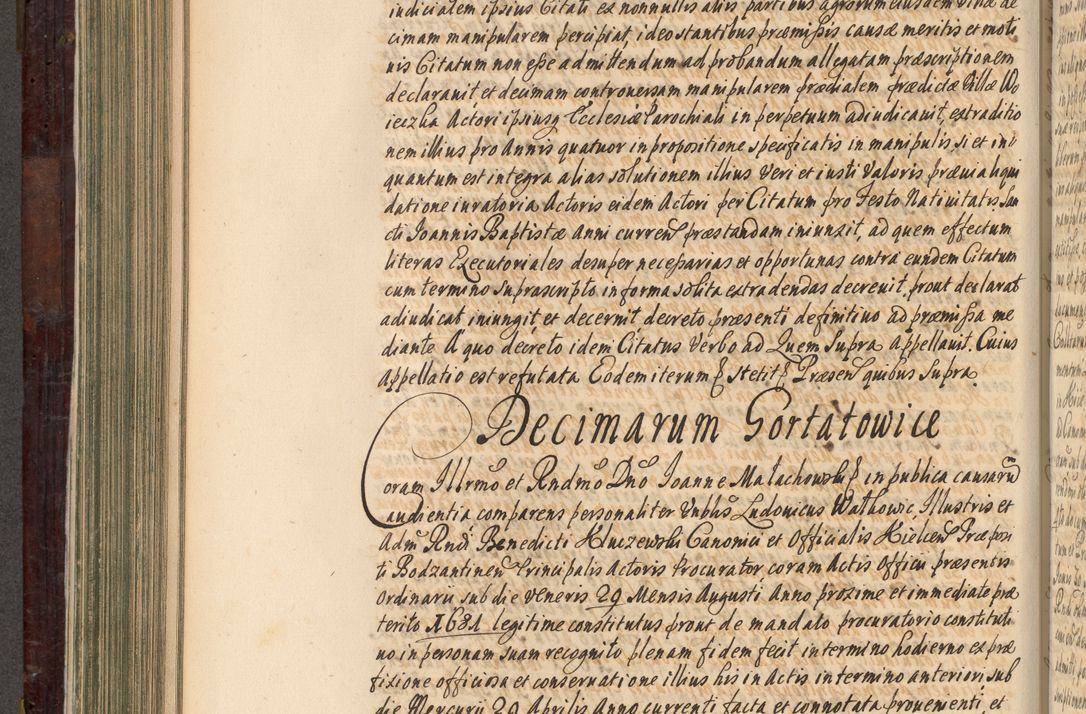 iudicialem ipsius Citati ex nonnullis aliis partibus agrorum eiusdem Villæ de
cimam manipularem percipiat, ideo stantibus præmissis causæ meritis et moti
uis Citatum non esse admittendum ad probandum allegatam præscriptionem
declarauit et decimam controuersam manipularem prædialem prædictæ Villæ Wo
ieczka Actori ipsiusq Ecclesiæ Parochiali in perpetuum adiudicauit, extraditio
nem illius pro Annis quatuor in propositione specificatis in manipulis si et in
quantum est integra alias solutionem illius Veri et iusti Valoris præuia liqui
datione iuratoria Actoris eidem Actori per Citatum pro Festo Natiuitatis San
cti Joannis Baptistæ Anni curren præstandam iniunxit, ad quem effectum
literas Executoriales desuper necessarias et opportunas contra eundem Citatum
cum termino suprascripto in forma solita extradendas decreuit prout declarat
adiudicat iniungit et decernit decreto præsenti definitiuo ad præmissa me
diante A quo decreto idem Citatus Verbo ad Quem Supra Appellauit. Cuius
Appellatio est refutata Eodem iterum stetit Præsen quibus Supra
Decimarum Gortatowice
Coram Illrmo et Rndmo Dno Joanne Małachowski in publica causaru
audientia comparens personaliter Vnblis Ludouicus Walkowic Illustris et
Adm Rndi Benedicti Kluczewski Canonici et Officialis Kielcen Præposi
ti Bodzantinen Principalis Actoris Procurator, coram Actis Officii præsentis
Ordinarii sub die Veneris 29 Mensis Augusti Anno proxime et immediate præ
terito 1681 legitime constitutus prout de mandato procuratorio constituti
uo in personam suam recognito plenam fidem fecit in termino hodierno ex præ
fixione officiosa et conseruatione illius his in Actis in termino anteriori sub
die Mercurii 29 Aprilis Anno currenti facta et connotata prouenienti, et